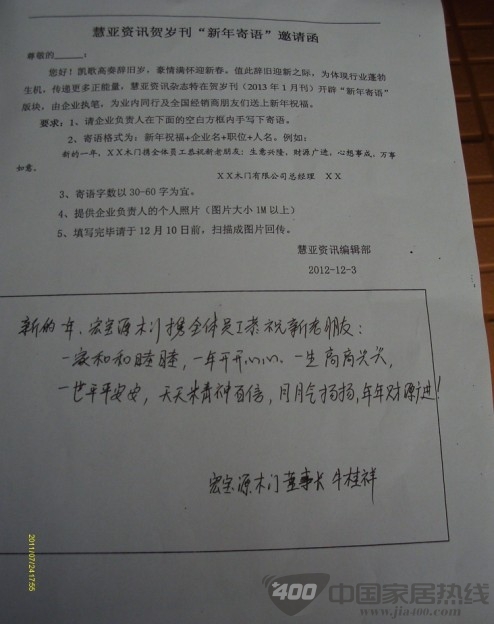 慧亚资讯贺岁刊“新年寄语”邀请函
尊敬的______：
您好！凯歌高奏辞旧岁，豪情满怀迎新春。值此辞旧迎新之际，为体现行业蓬勃
生机，传递更多正能量，慧亚资讯杂志特在贺岁刊（2013年1月刊）开辟“新年寄语”
版块，由企业执笔，为业内同行及全国经销商朋友们送上新年祝福。
要求：1、请企业负责人在下面的空白方框内手写下寄语。
2、寄语格式为：新年祝福+企业名+职位+人名。例如：
新的一年，XX木门携全体员工恭祝新老朋友：生意兴隆，财源广进，心想事成，万事
如意。
XX木门有限公司总经理 XX
3、寄语字数以30-60字为宜。
4、提供企业负责人的个人照片（图片大小1M以上）
5、填写完毕请于12月10日前，扫描成图片回传。
慧亚资讯编辑部
2012-12-3
新的一年、宏宝源木门携全体员工恭祝新老朋友：
一家和和睦睦，一年开开心心、一生高高兴兴，
一世平平安安，天天精神百倍，月月气扬扬，年年财源进！
宏宝源木门董事长 牛桂祥
2011/07/24 17:55
400 中国家居热线
www.jia400.com